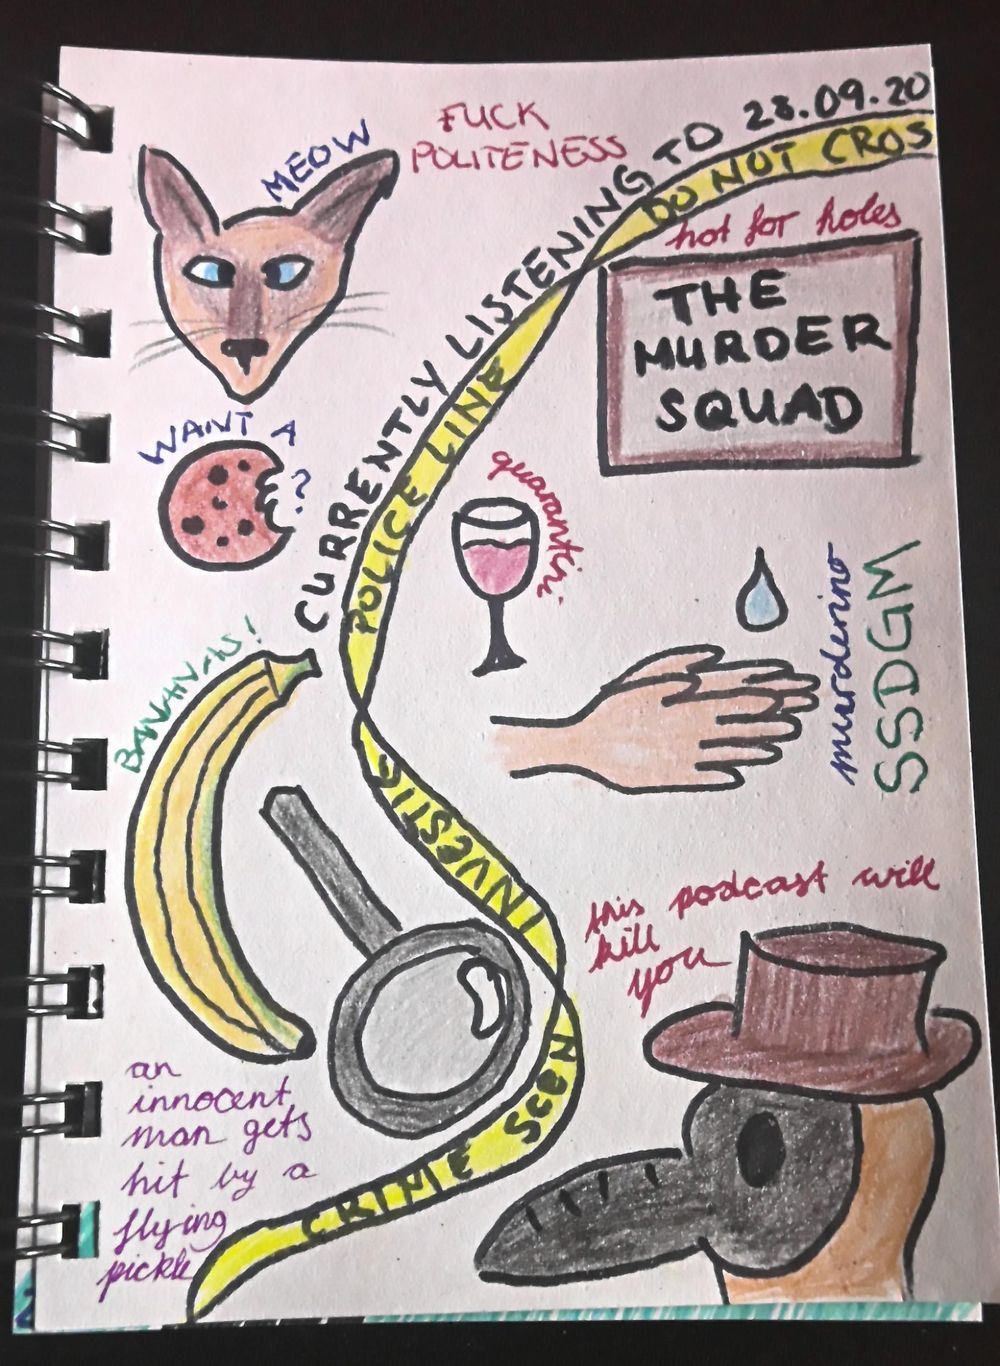 28.09.20
FUCK
POLITENESS
MEOW
CURRENTLY LISTENING TO
DO NOT CROS
POLICE LINE
INVESTIG
CRIME SCEN
hot for holes
THE
MURDER
SQUAD
WANT A
?
quarantini
murderino
SSDGM
BANANAS!
this podcast will
kill
you
an
innocent
man gets
hit by a
flying
pickle